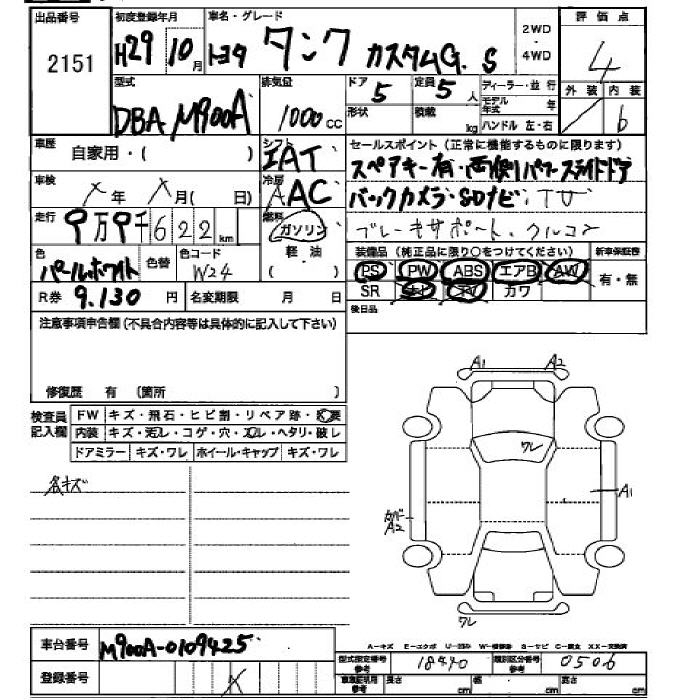 出品番号 初度登録年月 車名・グレード 2WD・4WD 評価点
2151 H29 10月 トヨタ タンク カスタムG. S 4
型式 排気量 ドア 定員 ディーラー・並行 外装 内装
DBA M900A 1000 CC 5 5人 モデル年式 年
形状 積載 kg ハンドル 左・右 b
車歴 自家用・( ) シフト IAT セールスポイント(正常に機能するものに限ります)
スペアキー有・両側パワースライドドア
車検 X年 X月( 日) 冷房 AAC バックカメラ・SDナビ・TV
走行 9万9千622km 燃料 ガソリン ブレーキサポート、クルコン
軽・油 ( )
色 パールホワイト 色替 色コード W24 装備品(純正品に限り○をつけてください) 新車保証書
PS PW ABS エアB AW 有・無
R券 9.130円 名変期限 月 日 SR カワ
後日品
注意事項申告欄(不具合内容等は具体的に記入して下さい)
修復歴 有(箇所 )
検査員記入欄 FW キズ・飛石・ヒビ割・リペア跡・交要
内装 キズ・汚レ・コゲ・穴・スレ・ヘタリ・破レ
ドアミラー キズ・ワレ ホイール・キャップ キズ・ワレ
A1 A2
ワレ
各キズ
A1
A2
ワレ
車台番号 M900A-0109425
A-キズ E-エクボ U-凹み W-補修跡 S-サビ C-腐食 XX-交換済
登録番号 X 型式指定番号 参考 18440 類別区分番号 参考 0506
長さ cm 幅 cm 高さ cm